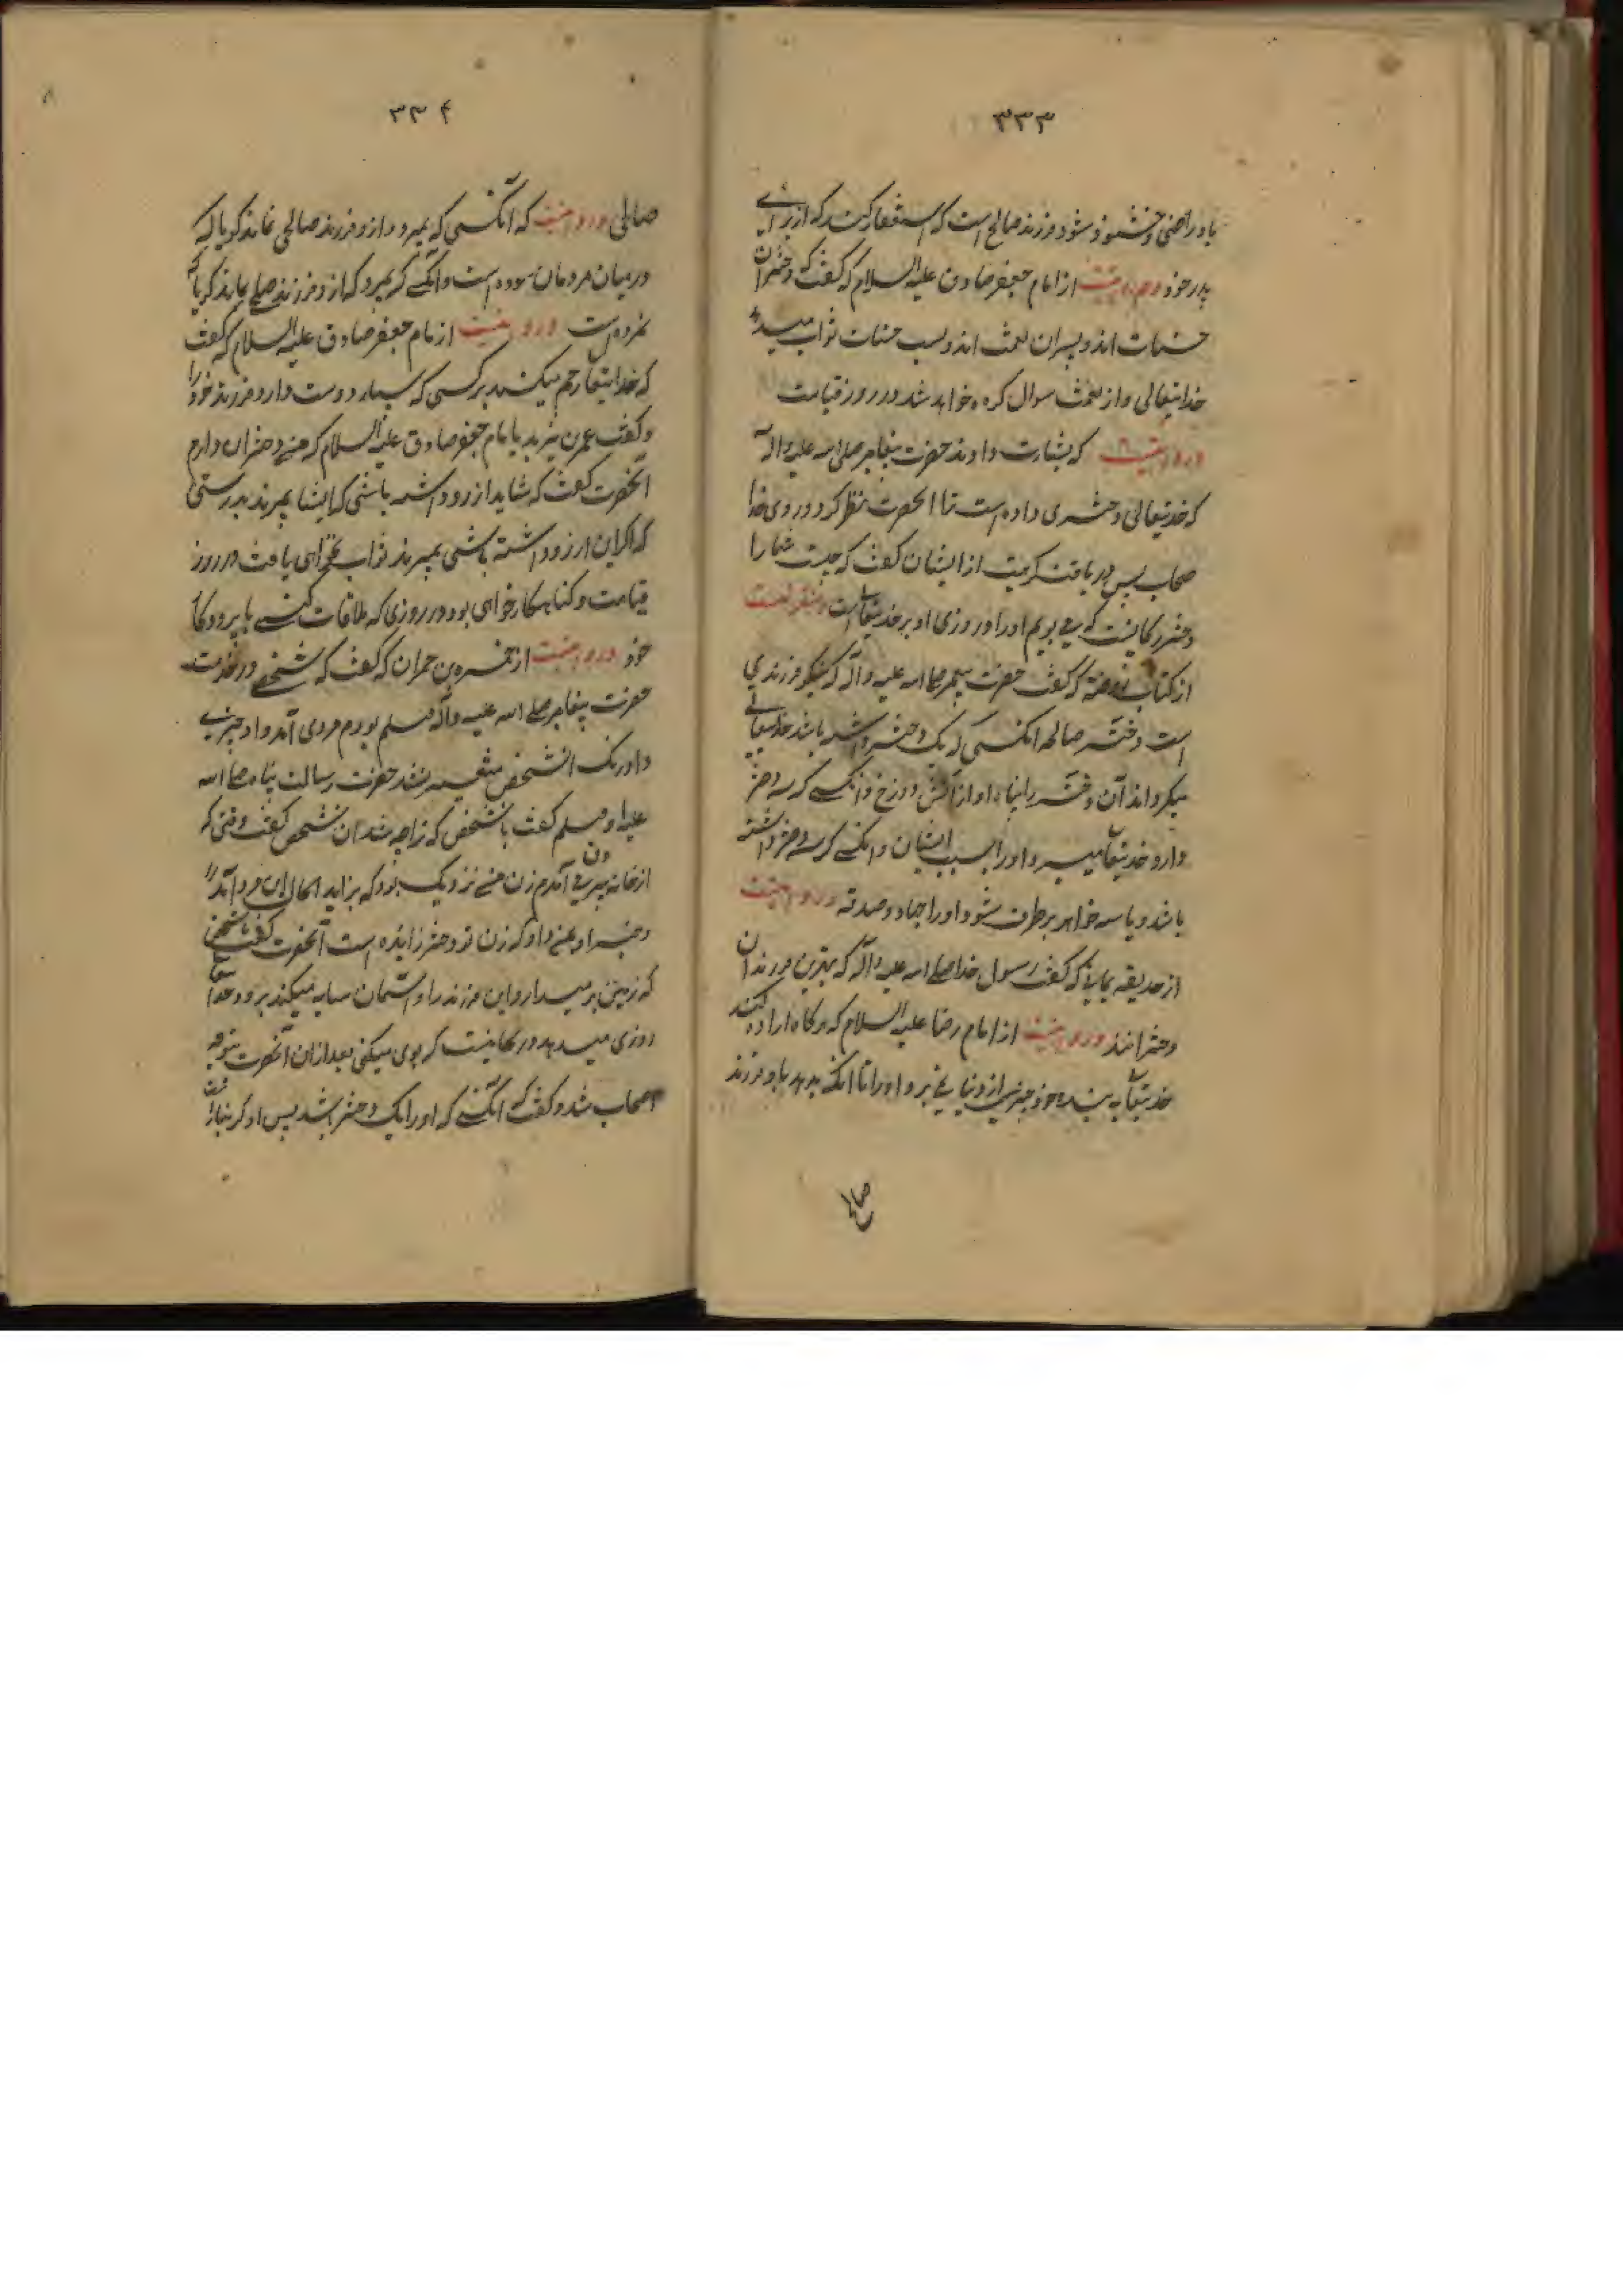 ۳۳۳
باو راضی و خشنود شود فرزند صالح است که استغفار کند که از برای
پدر خود و مرویست از امام جعفر صادق علیه السلام که گفت که دختران
حسنات اند و پسران نعمت اند و بسبب حسنات ثواب میدهد
خدایتعالی و از نعمت سوال کرده خواهد شد در روز قیامت
و مرویست که بشارت دادند حضرت پیغامبر صلی الله علیه و اله
که خدیتعالی دختری داده است تا انحضرت نظر کرد در روی
صحاب پس دریافت کریت از ایشان گفت که چیست شما را
دختر ریحانیست که می بویم او را و روزی او بر خدیتعالی است و منقولست
از کتاب روضه که گفت حضرت پیغمبر صلی الله علیه و اله که نیکو فرزندی
است دختر صالحه انکسی که یک دختر داشته باشد خدایتعالی
میگرداند آن دختر را پناه او از آتش دوزخ و انکسی که دو دختر
دارد خدیتعالی میبرد او را بسبب ایشان و انکسی که سه دختر داشته
باشد و یا سه خواهر برطرف شود او را جهاد و صدقه و مرویست
از حذیفه یمانی که گفت رسول خدا صلی الله علیه و اله که بهترین فرزندان
دخترانند و مرویست از امام رضا علیه السلام که هرگاه اراده کند
خدیتعالی به بنده خود چیزی از دنیا نمی برد او را تا انکه بدهد باو فرزند
صالح
۳۳۴
صالحی و مرویست که انکسی که بمیرد و از و فرزند صالحی نماند گویا که
در میان مردمان نبوده است و انکسی که بمیرد که از و فرزند صالحی بماند گویا که
نمرده است و مرویست از امام جعفر صادق علیه السلام که گفت
که خدایتعالی رحم میکند بر کسی که بسیار دوست دارد فرزند خود را
و گفت عمر بن یزید بامام جعفر صادق علیه السلام که من دختران دارم
انحضرت گفت که شاید ارزو داشته باشی که ایشان بمیرند بدرستی
که اگر این ارزو داشته باشی بمیرند ثواب نخواهی یافت در روز
قیامت و گناهکار خواهی بود در روزی که ملاقات کنی با پروردگار
خود و مرویست از حمزه بن حمران که گفت که شخصی در خدمت
حضرت پیغامبر صلی الله علیه و اله و سلم بودم مردی آمد و او خبری
داد رنک انشخص متغیر شد حضرت رسالت پناه صلی الله
علیه و سلم گفت بانشخص که ترا چه شد ان شخص گفت وقتی که
از خانه بیرون می آمدم زن من نزدیک بود که بزاید الحال این مرد آمد
و خبر او بمن داد که زن تو دختر زائیده است انحضرت گفت بانشخص
که زمین بر میدارد این فرزند را و آسمان سایه میکند برو و خدایتعالی
روزی میدهد و ریحانیست که بوی میکنی بعد از آن آنحضرت متوجه
اصحاب شد و گفت که انکسی که او را یک دختر باشد پس او گرانبار است